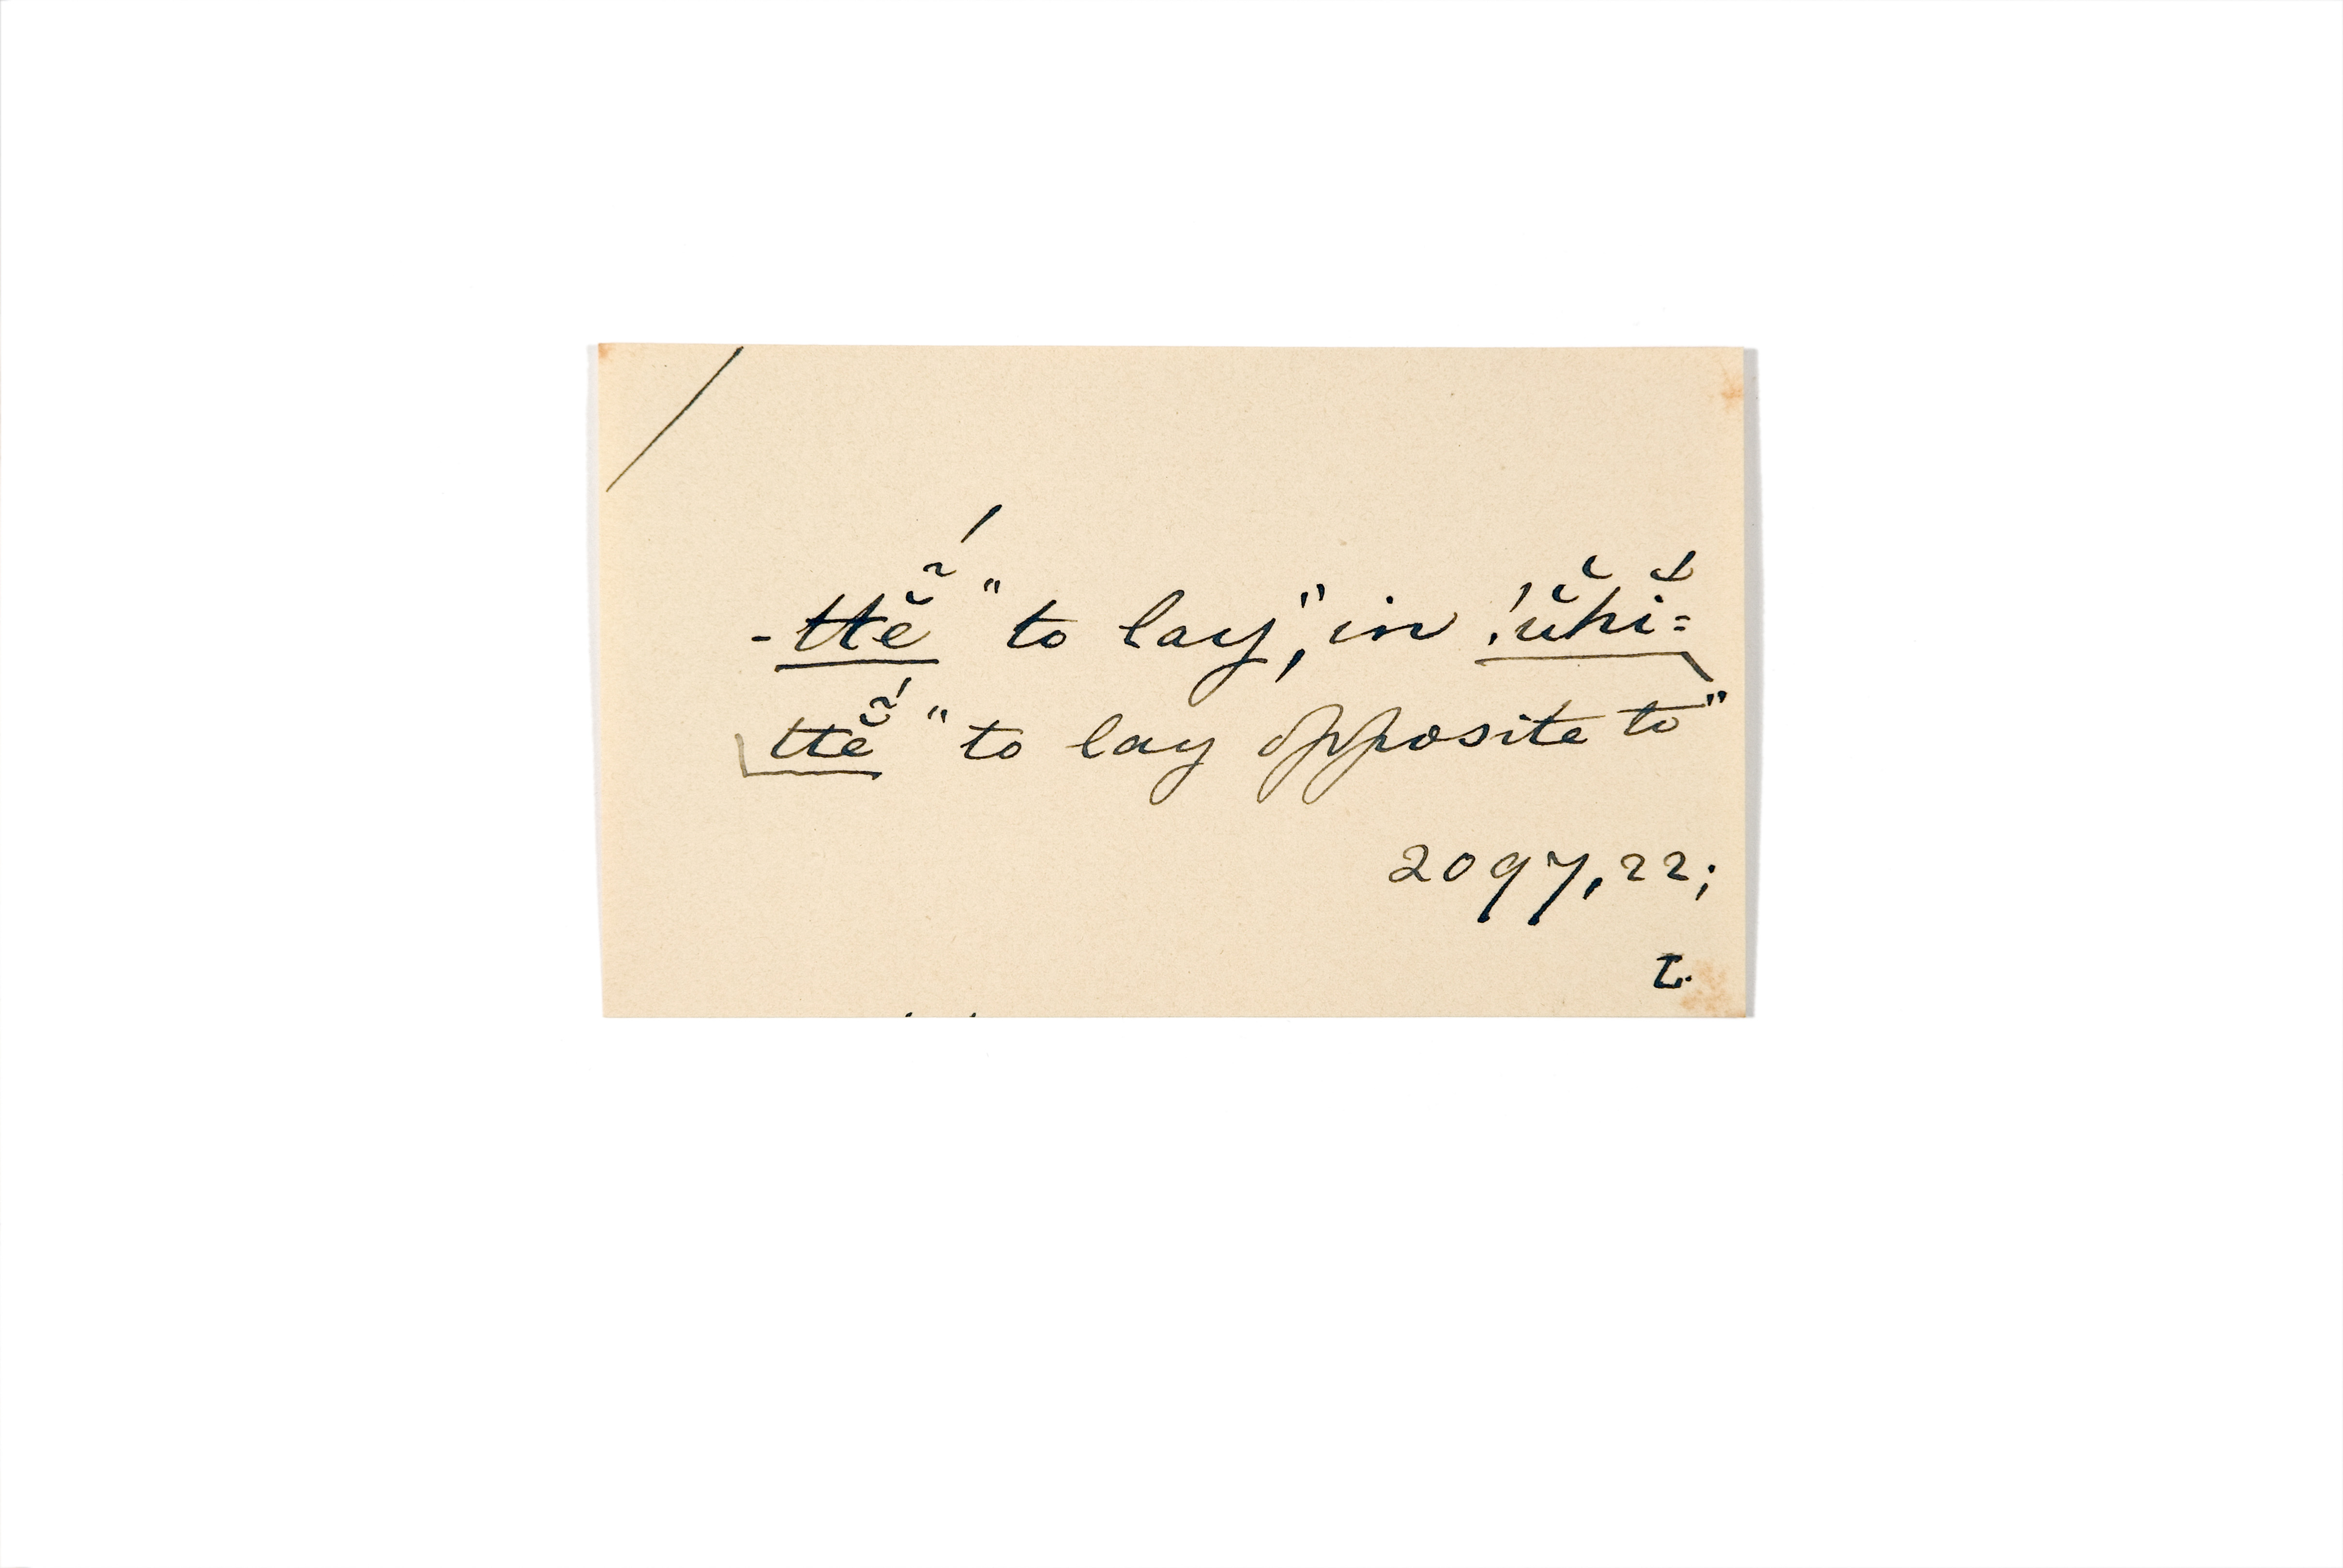 -ttẽ̆́ "to lay", in !ŭhĭ=
ttẽ̆́ "to lay opposite to"
2097,22;
t.